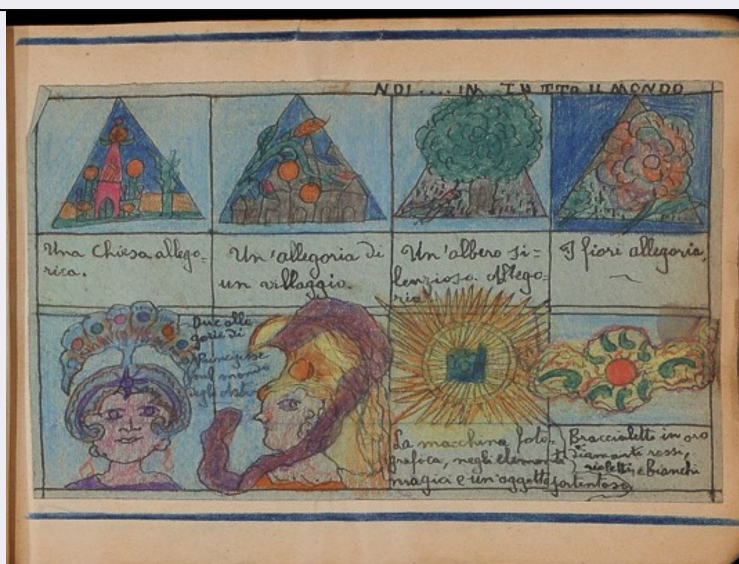 NOI .... IN TUTTO IL MONDO
Una Chiesa allego=
rica.
Un'allegoria di
un villaggio.
Un'albero si=
lenzioso. Allego=
ria
I fiori allegoria,
Due alle
gorie di
Principesse
sul mondo
degli Astri
La macchina foto=
grafica, negli elementi
magici e un'oggetto portentoso
Braccialetti in oro
Diamanti rossi,
violetti, e Bianchi